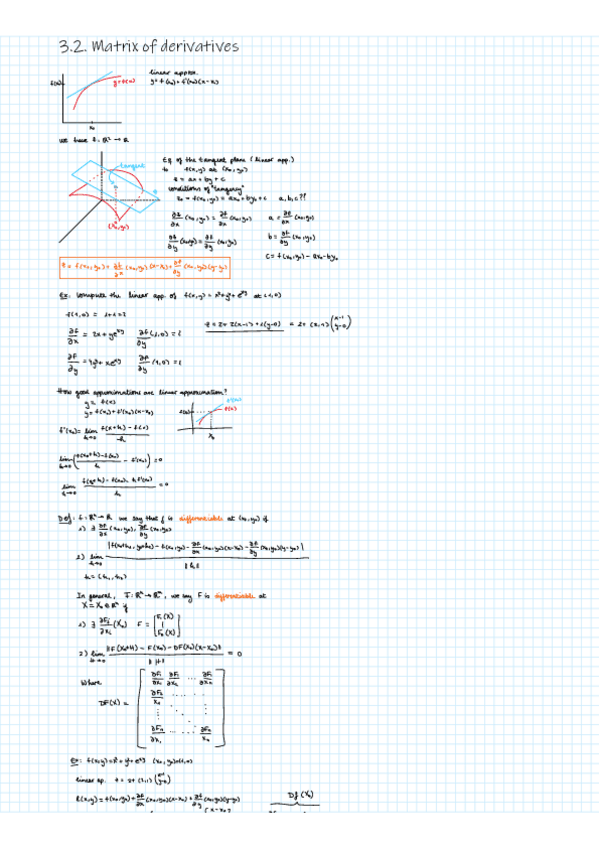 3.2. Matrix of derivatives
linear approx.
y = f(x₀) + f'(x₀)(x-x₀)
f(x₀)
y=f(x)
x₀
we have f: ℝ² → ℝ
tangent
(x₀,y₀)
Eq of the tangent plane (linear app.)
to f(x,y) at (x₀,y₀)
z = ax + by + c
conditions of "tangency"
z₀ = f(x₀,y₀) = ax₀ + by₀ + c a,b,c?!
∂z/∂x (x₀,y₀) = ∂f/∂x (x₀,y₀) a = ∂f/∂x (x₀,y₀)
∂z/∂y (x₀,y₀) = ∂f/∂y (x₀,y₀) b = ∂f/∂y (x₀,y₀)
c = f(x₀,y₀) - ax₀ - by₀
z = f(x₀,y₀) + ∂f/∂x (x₀,y₀)(x-x₀) + ∂f/∂y (x₀,y₀)(y-y₀)
Ex: Compute the linear app. of f(x,y) = x²+y⁴+e^xy at (1,0)
f(1,0) = 1+1=2
∂f/∂x = 2x + ye^xy
z = 2+ 2(x-1) + 1(y-0) = 2+ (2,1) (x-1 y-0)
∂f/∂y (1,0) = 1
How good approximations are linear approximation?
y = f(x)
y = f(x₀) + f'(x₀)(x-x₀)
f(x₀)
f(x)
x₀
f'(x₀) = lim h→0
lim h→0 ( f(x₀+h) - f(x₀) / h - f'(x₀) ) = 0
lim h→0 f(x₀+h) - f(x₀) - h f'(x₀) / h = 0
Def: f: ℝ² → ℝ we say that f is differentiable at (x₀,y₀) if
1) ∃ ∂f/∂x (x₀,y₀), ∂f/∂y (x₀,y₀)
2) lim h→0 | f(x₀+h₁, y₀+h₂) - f(x₀,y₀) - ∂f/∂x (x₀,y₀)(x-x₀) - ∂f/∂y (x₀,y₀)(y-y₀) | / ‖h‖
h = (h₁, h₂)
In general, F: ℝⁿ → ℝᵐ, we say F is differentiable at
X = X₀ ∈ ℝⁿ if
1) ∃ ∂Fᵢ/∂xᵢ (X₀) F =
2) lim H→0 ‖F(X₀+H) - F(X₀) - DF(X₀)(x-x₀)‖ / ‖H‖ = 0
Where
DF(X) =
Ex: f(x,y) = x²+y⁴+e^xy (x₀,y₀)=(1,0)
linear ap. z = 2+ (2,1) (x-1 y-0)
ℓ(x,y) = f(x₀,y₀) + ∂f/∂x (x₀,y₀)(x-x₀) + ∂f/∂y (x₀,y₀)(y-y₀)
Df(X₀)